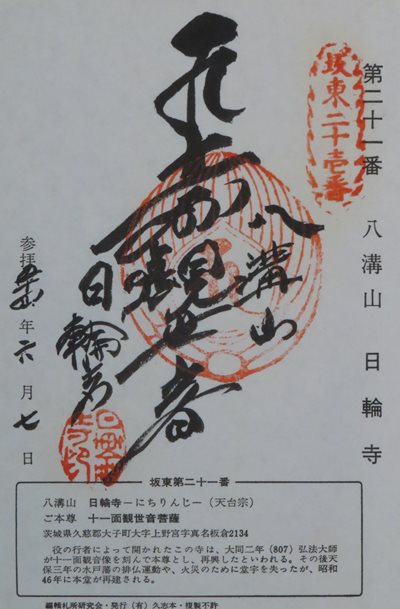 坂東二十壱番
第二十一番　八溝山　日輪寺
八溝山
十一面観世音
日輪寺
参拝　年六月七日
坂東第二十一番
八溝山　日輪寺ーにちりんじー（天台宗）
ご本尊　十一面観世音菩薩
茨城県久慈郡大子町大字上野宮字真名板倉2134
役の行者によって開かれたこの寺は、大同二年（807）弘法大師
が十一面観音像を刻んで本尊とし、再興したといわれる。その後天
保三年の水戸藩の排仏運動や、火災のために堂宇を失ったが、昭和
46年に本堂が再建される。
編輯札所研究会・発行（有）久志本・複製不許